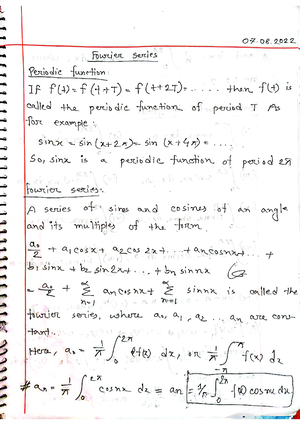 07.08.2022
Fourier series
Periodic function:
If f(t) = f(t+T) = f(t+2T) = ...... then f(t) is
called the periodic function of period T As
for example:
sinx = sin(x+2π) = sin (x+4π) = .....
So, sinx is a periodic function of period 2π
fourier series:
A series of sines and cosines of an angle
and its multiples of the form
a₀/2 + a₁cosx + a₂ cos 2x + .. + aₙcosnx + .. +
b₁ sinx + b₂ sin2x + .. + bₙ sinnx
= a₀/2 + ∞Σn=1 aₙ cosnx + ∞Σn=1 sinnx is called the
fourier series, where a₀, a₁, a₂ ... aₙ are cons-
tant..
Here, a₀ = 1/π ∫₀^2π f(x) dx, or 1/π ∫₋π^π f(x) dx
# aₙ = 1/π ∫₀^2π cosnx dx = aₙ = 1/π ∫₀^2π f(x) cosnx dx